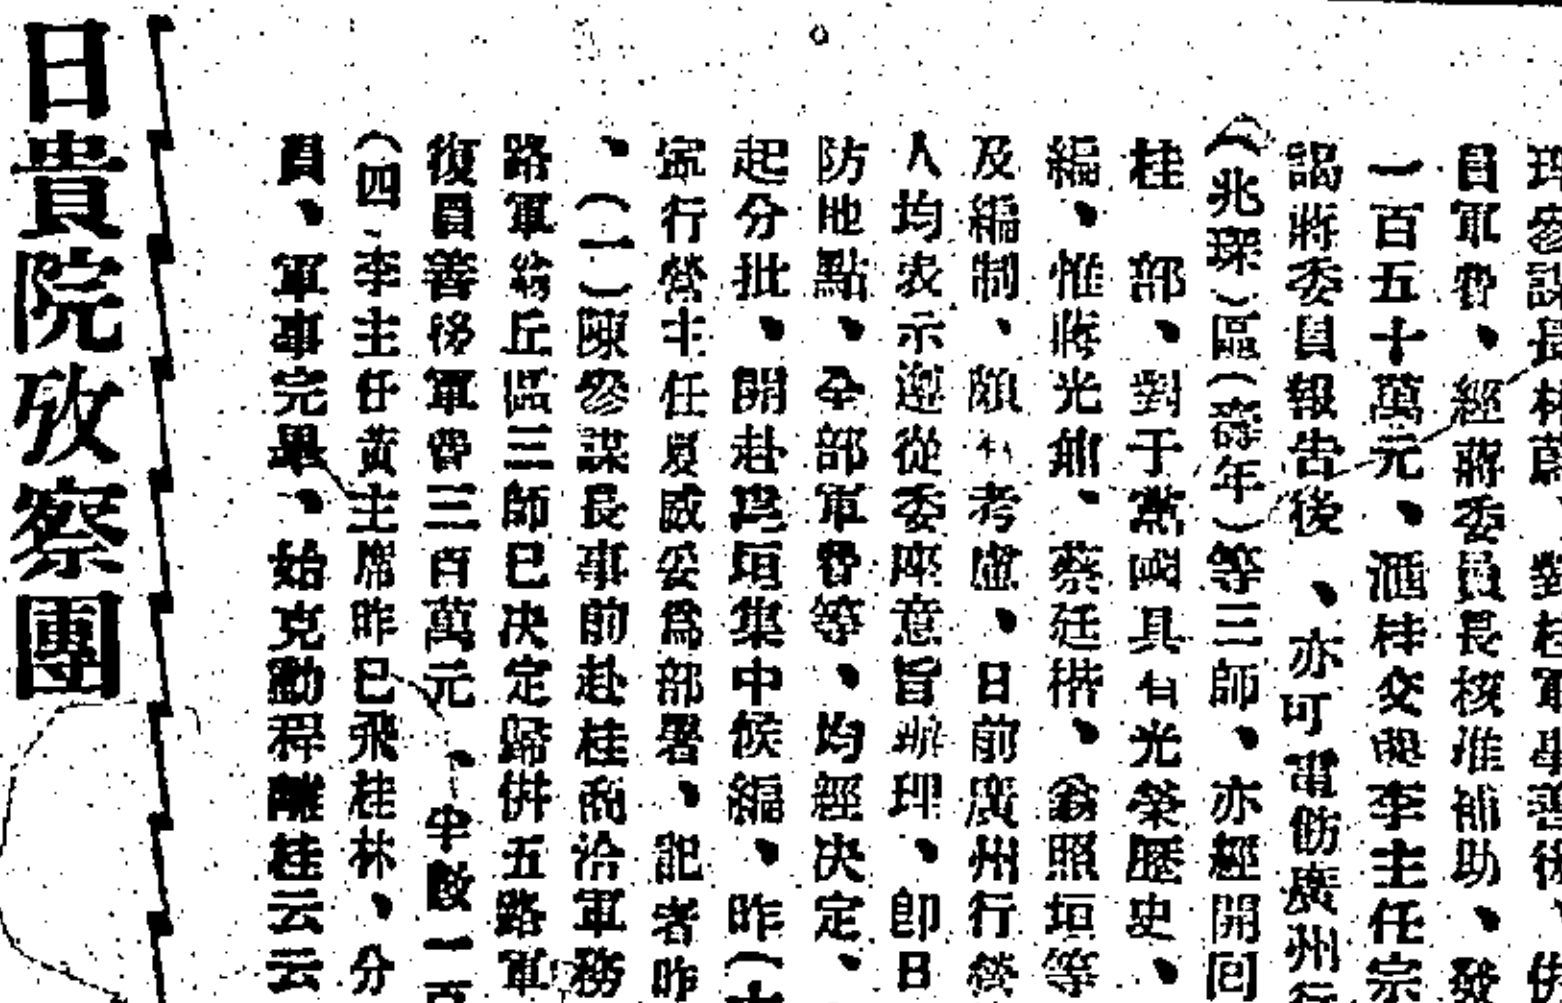 參謀長林蔚、對桂軍畢善後、
員軍費、經蔣委員長核准補助、發
一百五十萬元、滙桂交與李主任宗
謁蔣委員報告後、亦可電飭廣州行
（兆琛）區（壽年）等三師、亦經開回
桂部、對于黨國具有光榮歷史、
編、惟蔣光鼐、蔡廷楷、翁照垣等
及編制、頗有考慮、日前廣州行營
人均表示遵從委座意旨辦理、卽日
防地點、全部軍費等、均經決定、
起分批、開赴集中候編、昨（
行營主任夏威妥爲部署、記者昨
、（一）陳參謀長事前赴桂商洽軍務
路軍翁丘區三師已決定歸併五路軍
復員善後軍費三百萬元、中發一百
（四、李主任黃主席昨已飛桂林、分
員、軍事完畢、始克動程離桂云云
日貴院攷察團